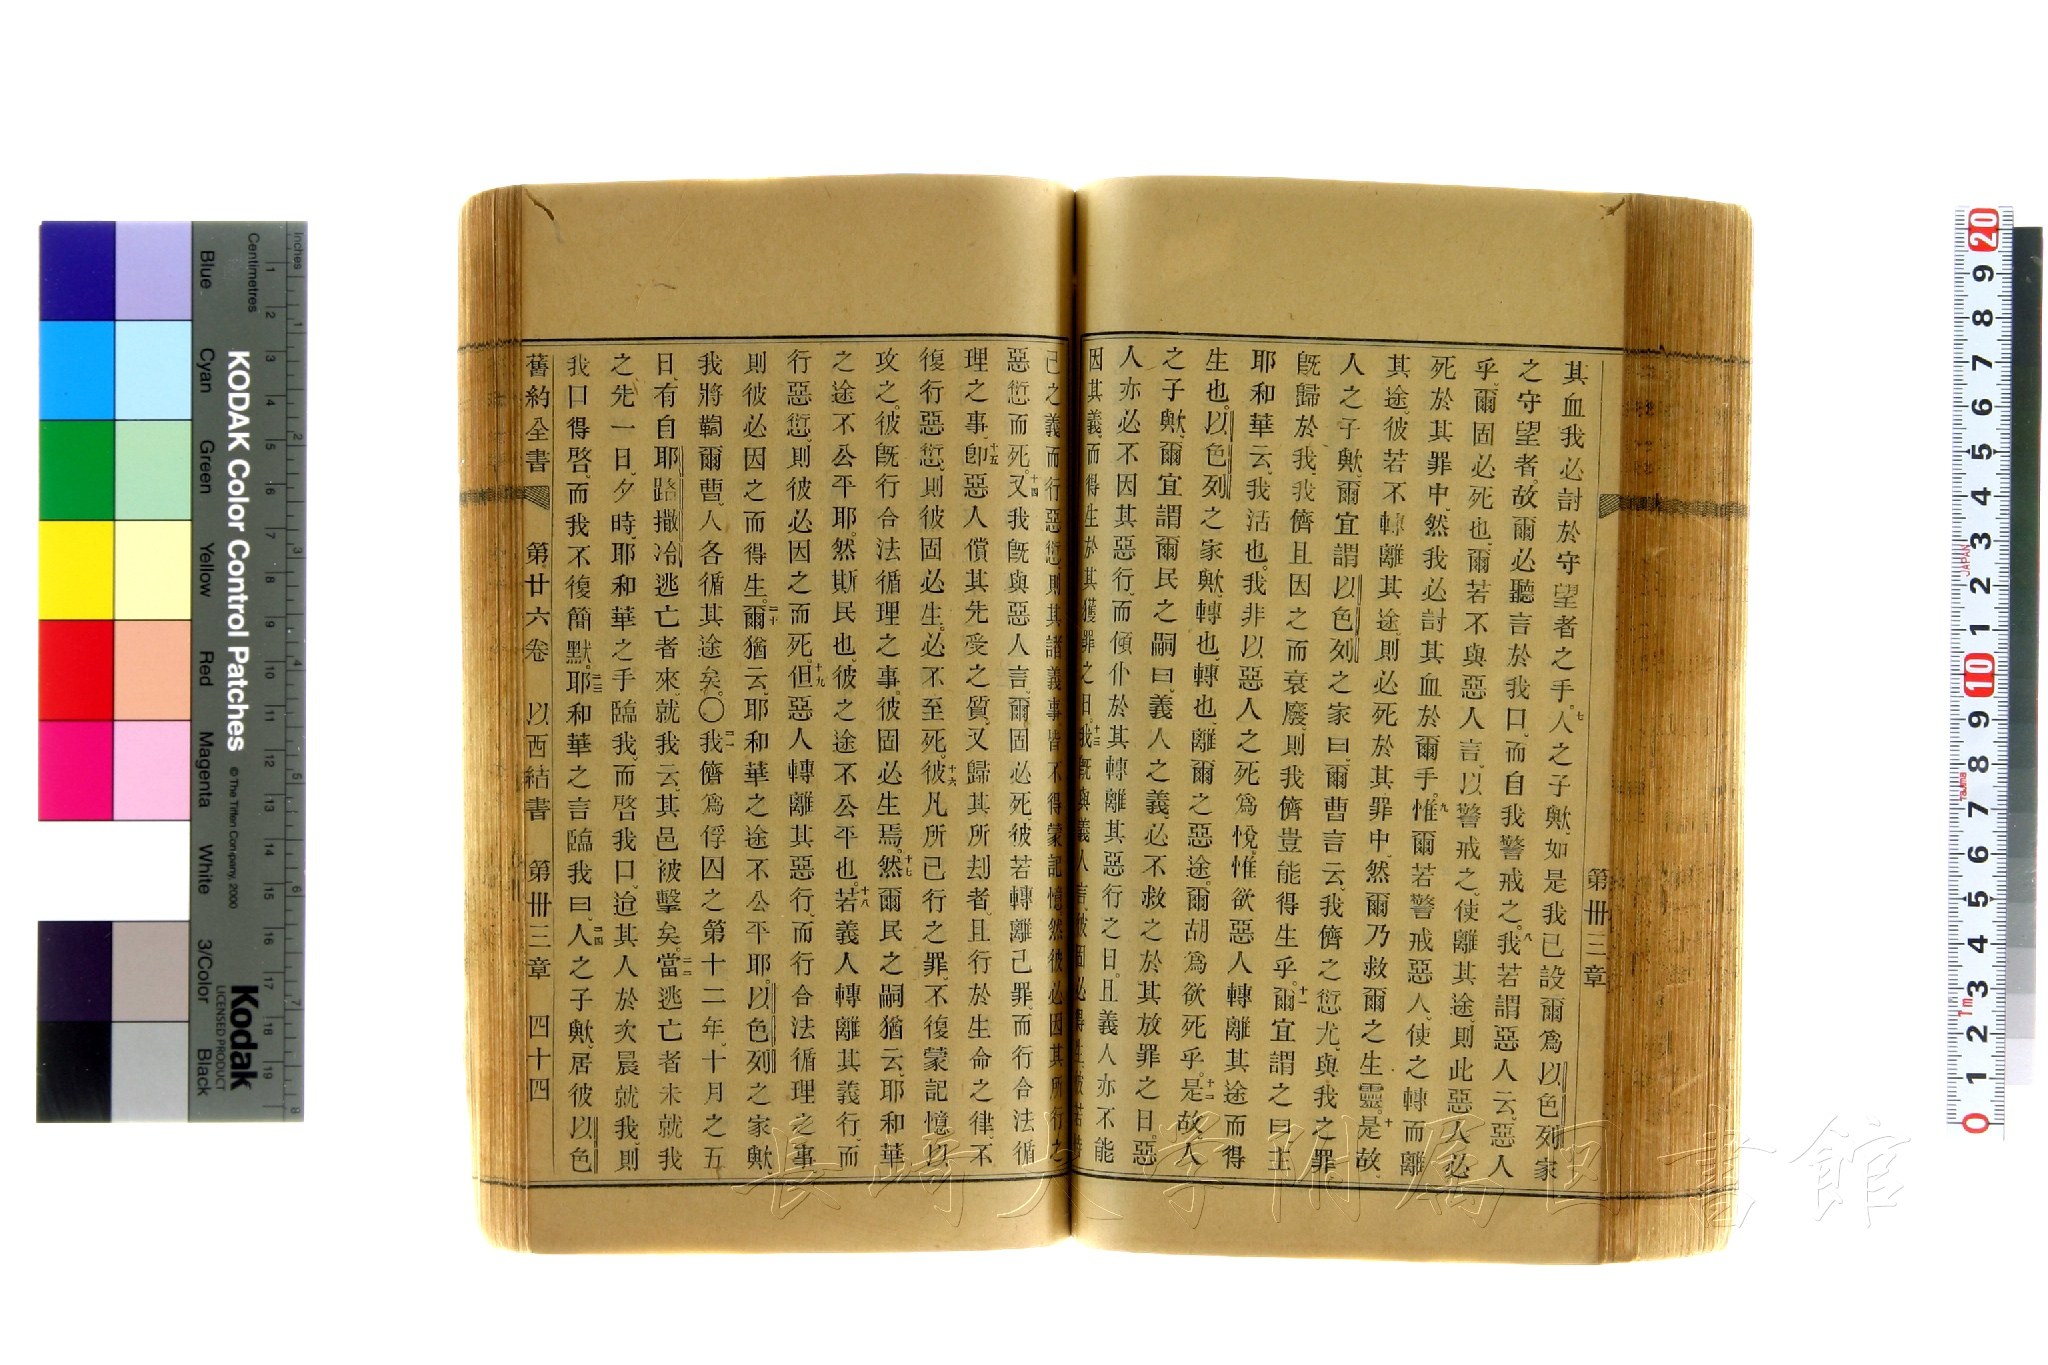 第卅三章
其血我必討於守望者之手。七人之子歟、如是我已設爾爲以色列家
之守望者。故爾必聽言於我口、而自我警戒之。八我若謂惡人云、惡人
乎、爾固必死也、爾若不與惡人言、以警戒之、使離其途、則此惡人必
死於其罪中、然我必討其血於爾手。九惟爾若警戒惡人、使之轉而離
其途。彼若不轉離其途、則必死於其罪中、然爾乃救爾之生靈。十是故、
人之子歟、爾宜謂以色列之家曰、爾曹言云、我儕之愆尤、與我之罪
旣歸於我、我儕且因之而衰廢、則我儕豈能得生乎。十一爾宜謂之曰、主
耶和華云、我活也。我非以惡人之死爲悅、惟欲惡人轉離其途而得
生也。以色列之家歟、轉也、轉也、離爾之惡途。爾胡爲欲死乎。十二是故、人
之子歟、爾宜謂爾民之嗣曰、義人之義、必不救之於其放罪之日。惡
人亦必不因其惡行、而傾仆於其轉離其惡行之日。且義人亦不能
因其義、而得生於其獲罪之日。十三我旣與義人言、彼固必得生、彼若恃
己之義而行惡愆、則其諸義事皆不得蒙記憶、然彼必因其所行之
惡愆而死。十四又我旣與惡人言、爾固必死、彼若轉離己罪、而行合法循
理之事、十五卽惡人償其先受之質、又歸其所刦者、且行於生命之律、不
復行惡愆、則彼固必生。必不至死。十六彼凡所已行之罪、不復蒙記憶以
攻之。彼旣行合法循理之事。彼固必生焉。十七然爾民之嗣猶云、耶和華
之途不公平耶。然斯民也。彼之途不公平也。十八若義人轉離其義行、而
行惡愆、則彼必因之而死。十九但惡人轉離其惡行、而行合法循理之事
則彼必因之而得生。二十爾猶云、耶和華之途不公平耶。以色列之家歟、
我將鞫爾曹、人各循其途矣。〇二一我儕爲俘囚之第十二年、十月之五
日、有自耶路撒冷逃亡者來、就我云、其邑被擊矣。二二當逃亡者未就我
之先一日、夕時、耶和華之手臨我。而啓我口、迨其人於次晨就我、則
我口得啓、而我不復簡默。二三耶和華之言臨我曰、二四人之子歟、居彼以色
舊約全書 第廿六卷 以西結書 第卅三章 四十四
inches
Centimetres
KODAK Color Control Patches
© The Tiffen Company, 2000
Kodak
LICENSED PRODUCT
Blue Cyan Green Yellow Red Magenta White 3/Color Black
JAPAN
Tajima
1m
長崎大学附属図書館